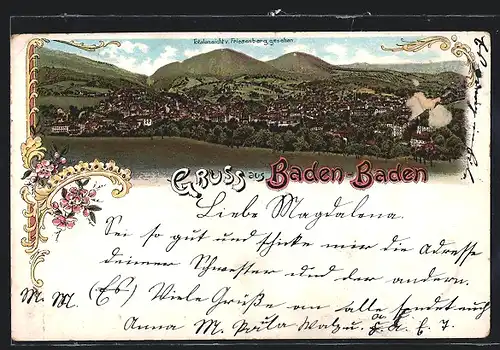 Totalansicht v. Friesenberg gesehen.
GRUSS aus Baden-Baden
Liebe Magdalena.
Sei so gut und schicke mir die Adresse
deiner Schwester und der andern.
M. M. (Es) Viele Grüße an alle sendet euch
Anna M.